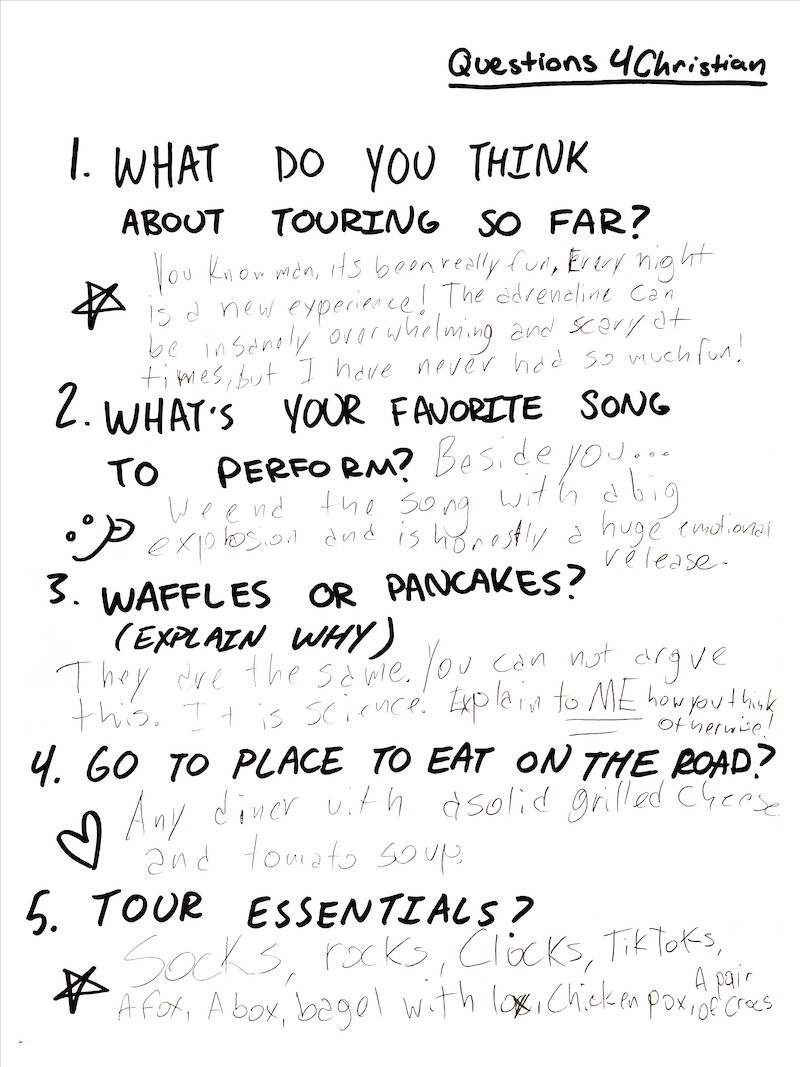 Questions 4 Christian
1. WHAT DO YOU THINK
ABOUT TOURING SO FAR?
You know man, its been really fun, Every night
is a new experience! The adrenaline can
be insanely overwhelming and scary at
times, but I have never had so much fun!
2. WHAT'S YOUR FAVORITE SONG
TO PERFORM? Beside you...
We end the song with a big
explosion and is honestly a huge emotional
release.
3. WAFFLES OR PANCAKES?
(EXPLAIN WHY)
They are the same. You can not argue
this. It is science. Explain to ME how you think
otherwise!
4. GO TO PLACE TO EAT ON THE ROAD?
Any diner with a solid grilled cheese
and tomato soup.
5. TOUR ESSENTIALS?
Socks, rocks, Clocks, TikToks,
A fox, A box, bagel with lox, Chicken pox, A pair
of crocs